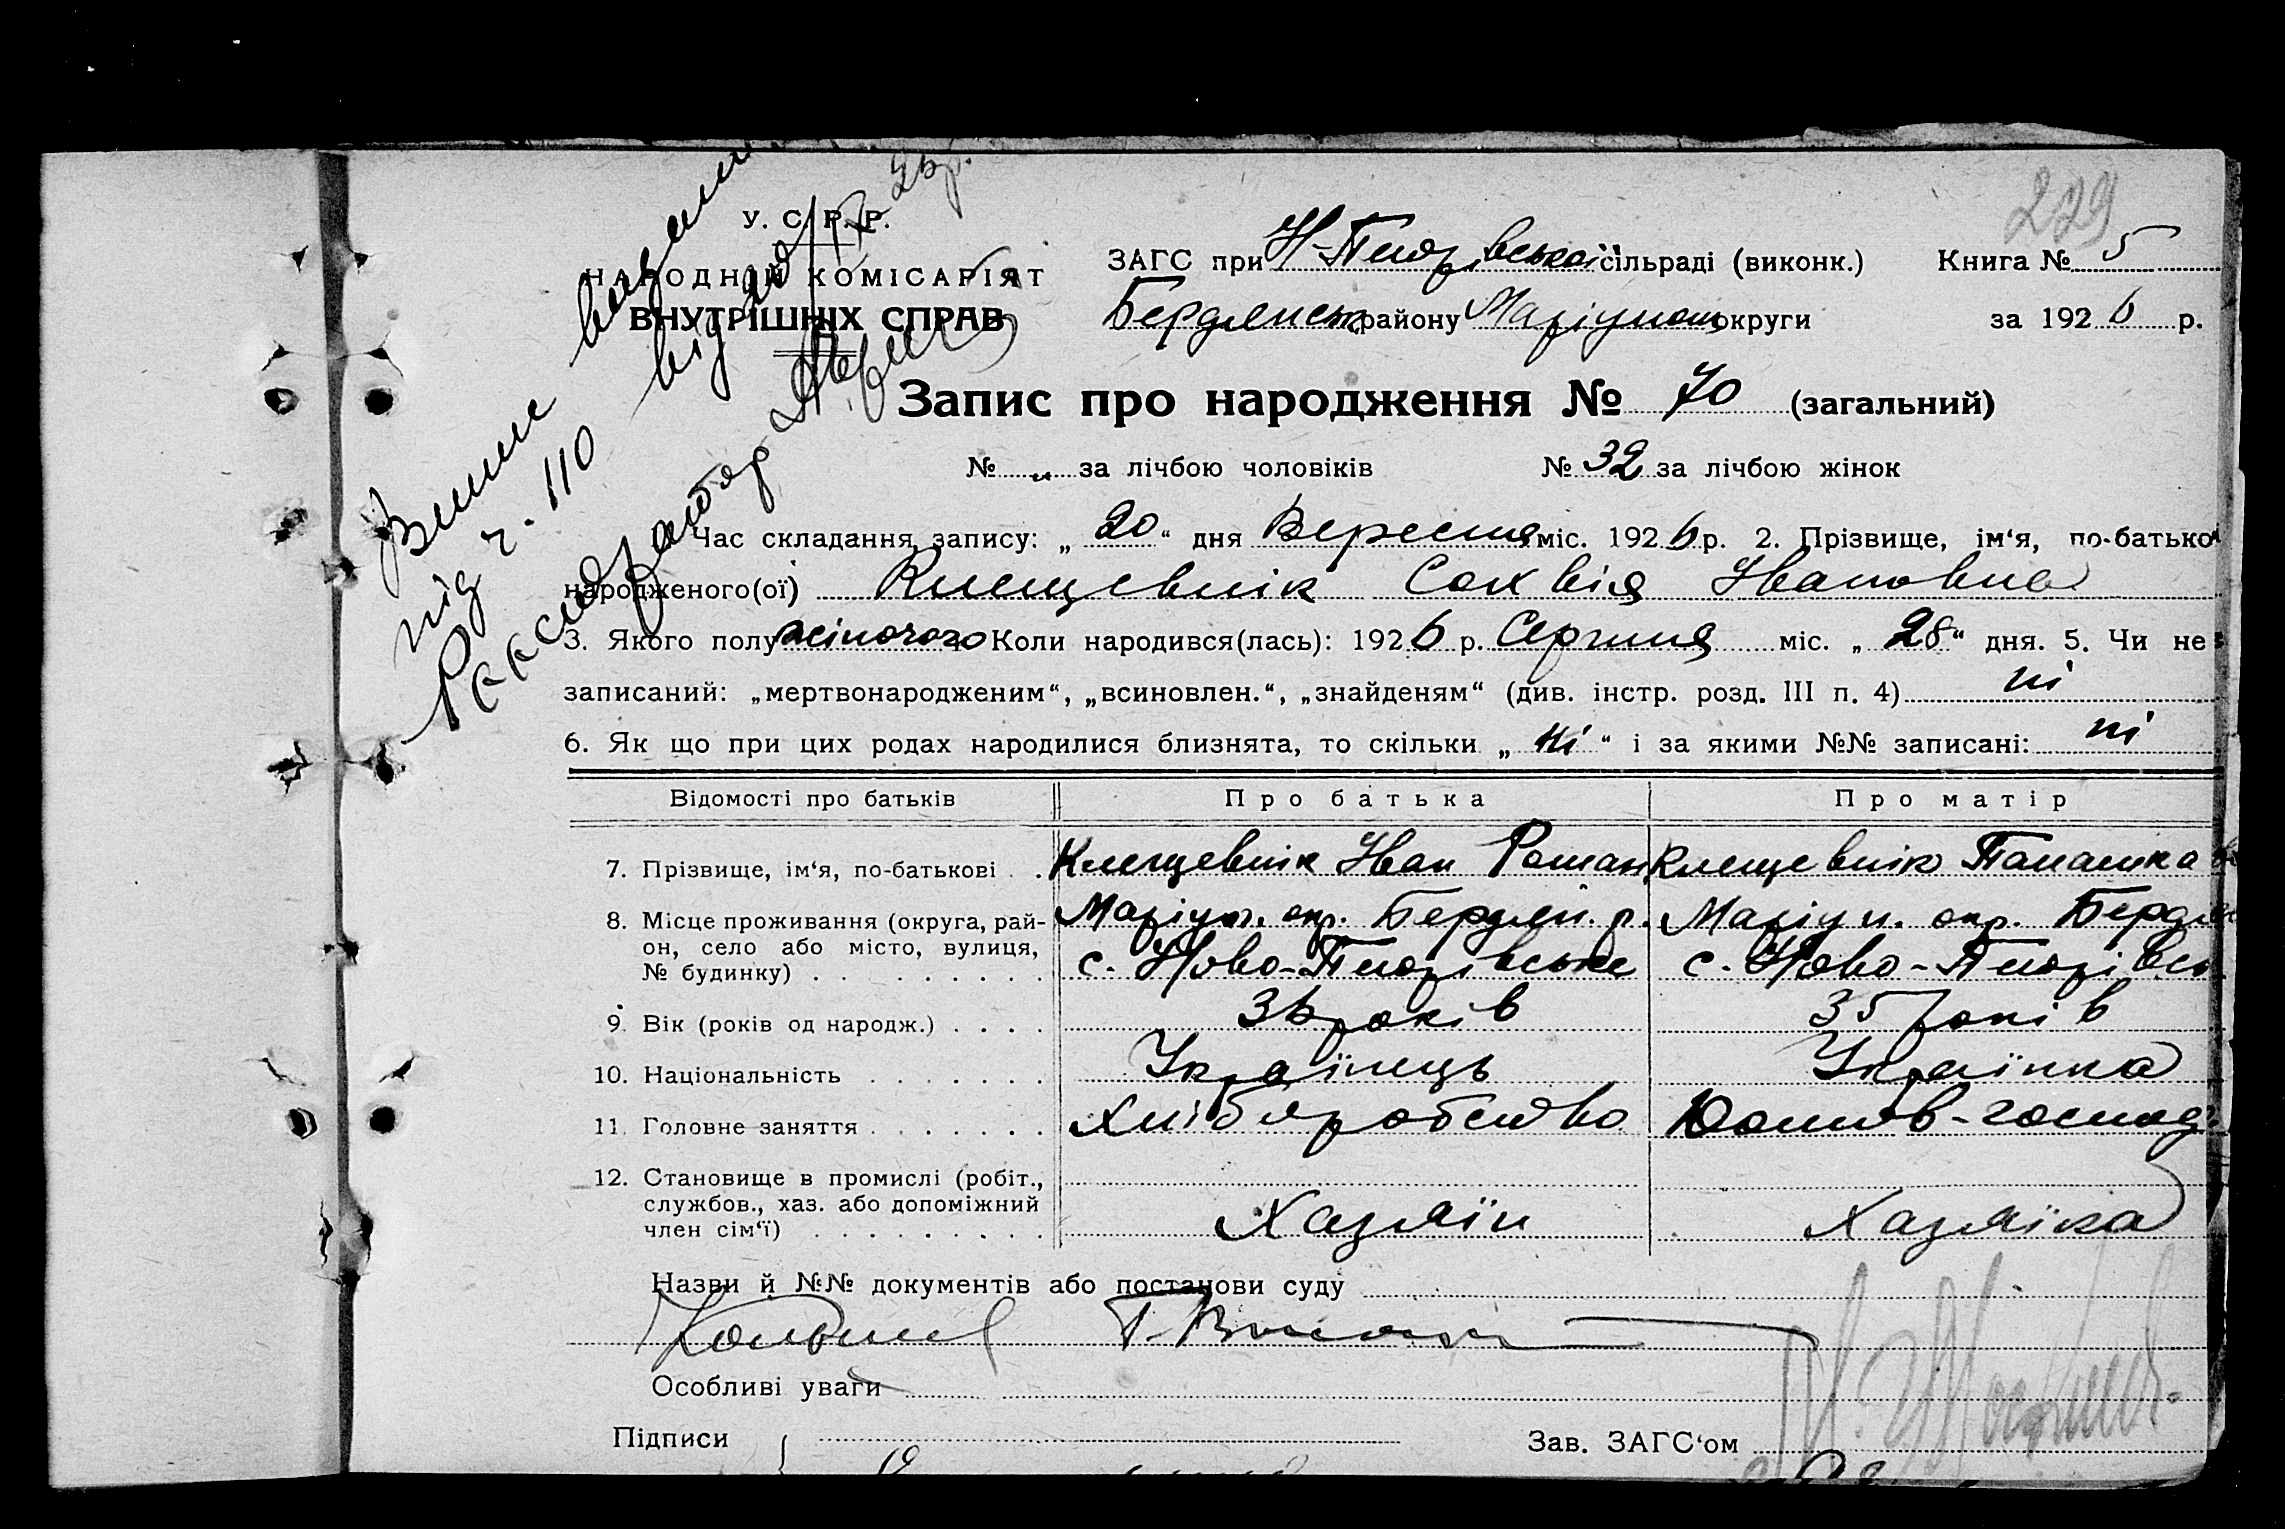 229
У. С. Р. Р.
НАРОДНІЙ КОМІСАРІЯТ
ВНУТРІШНІХ СПРАВ
ЗАГС при Н-Петрівської сільраді (виконк.) Книга № 5
Бердянськ району Маріупол округи за 1926 р.
Запис про народження № 70 (загальний)
№ „ за лічбою чоловіків № 32 за лічбою жінок
Час складання запису: „ 20 “ дня Вересня міс. 1926 р. 2. Прізвище, ім‘я, по-батькові
народженого(ої) Клещевнік Сохвія Івановна
3. Якого полу жіночого Коли народився(лась): 1926 р. Серпня міс. „ 28 “ дня. 5. Чи не
записаний: „мертвонародженим“, „всиновлен.“, „знайденям“ (див. інстр. розд. III п. 4) ні
6. Як що при цих родах народилися близнята, то скільки „ ні “ і за якими №№ записані: ні
Відомості про батьків Про батька Про матір
7. Прізвище, ім‘я, по-батькові Клещевнік Іван Роман Клещевнік
8. Місце проживання (округа, рай-
он, село або місто, вулиця,
№ будинку)
Маріуп. окр. Бердян. р. Маріуп. окр. Бердян
с. Ново-Петрівське с. Ново-Петрівськ
9. Вік (років од народж.) років 35 років
10. Національність Українець Українка
11. Головне заняття Хліборобство Домов-господ.
12. Становище в промислі (робіт.,
службов., хаз. або допоміжний
член сім‘ї)
Хазяїн Хазяїка
Назви й №№ документів або постанови суду
Особливі уваги
Підписи Зав. ЗАГС‘ом
під ч. 110 від